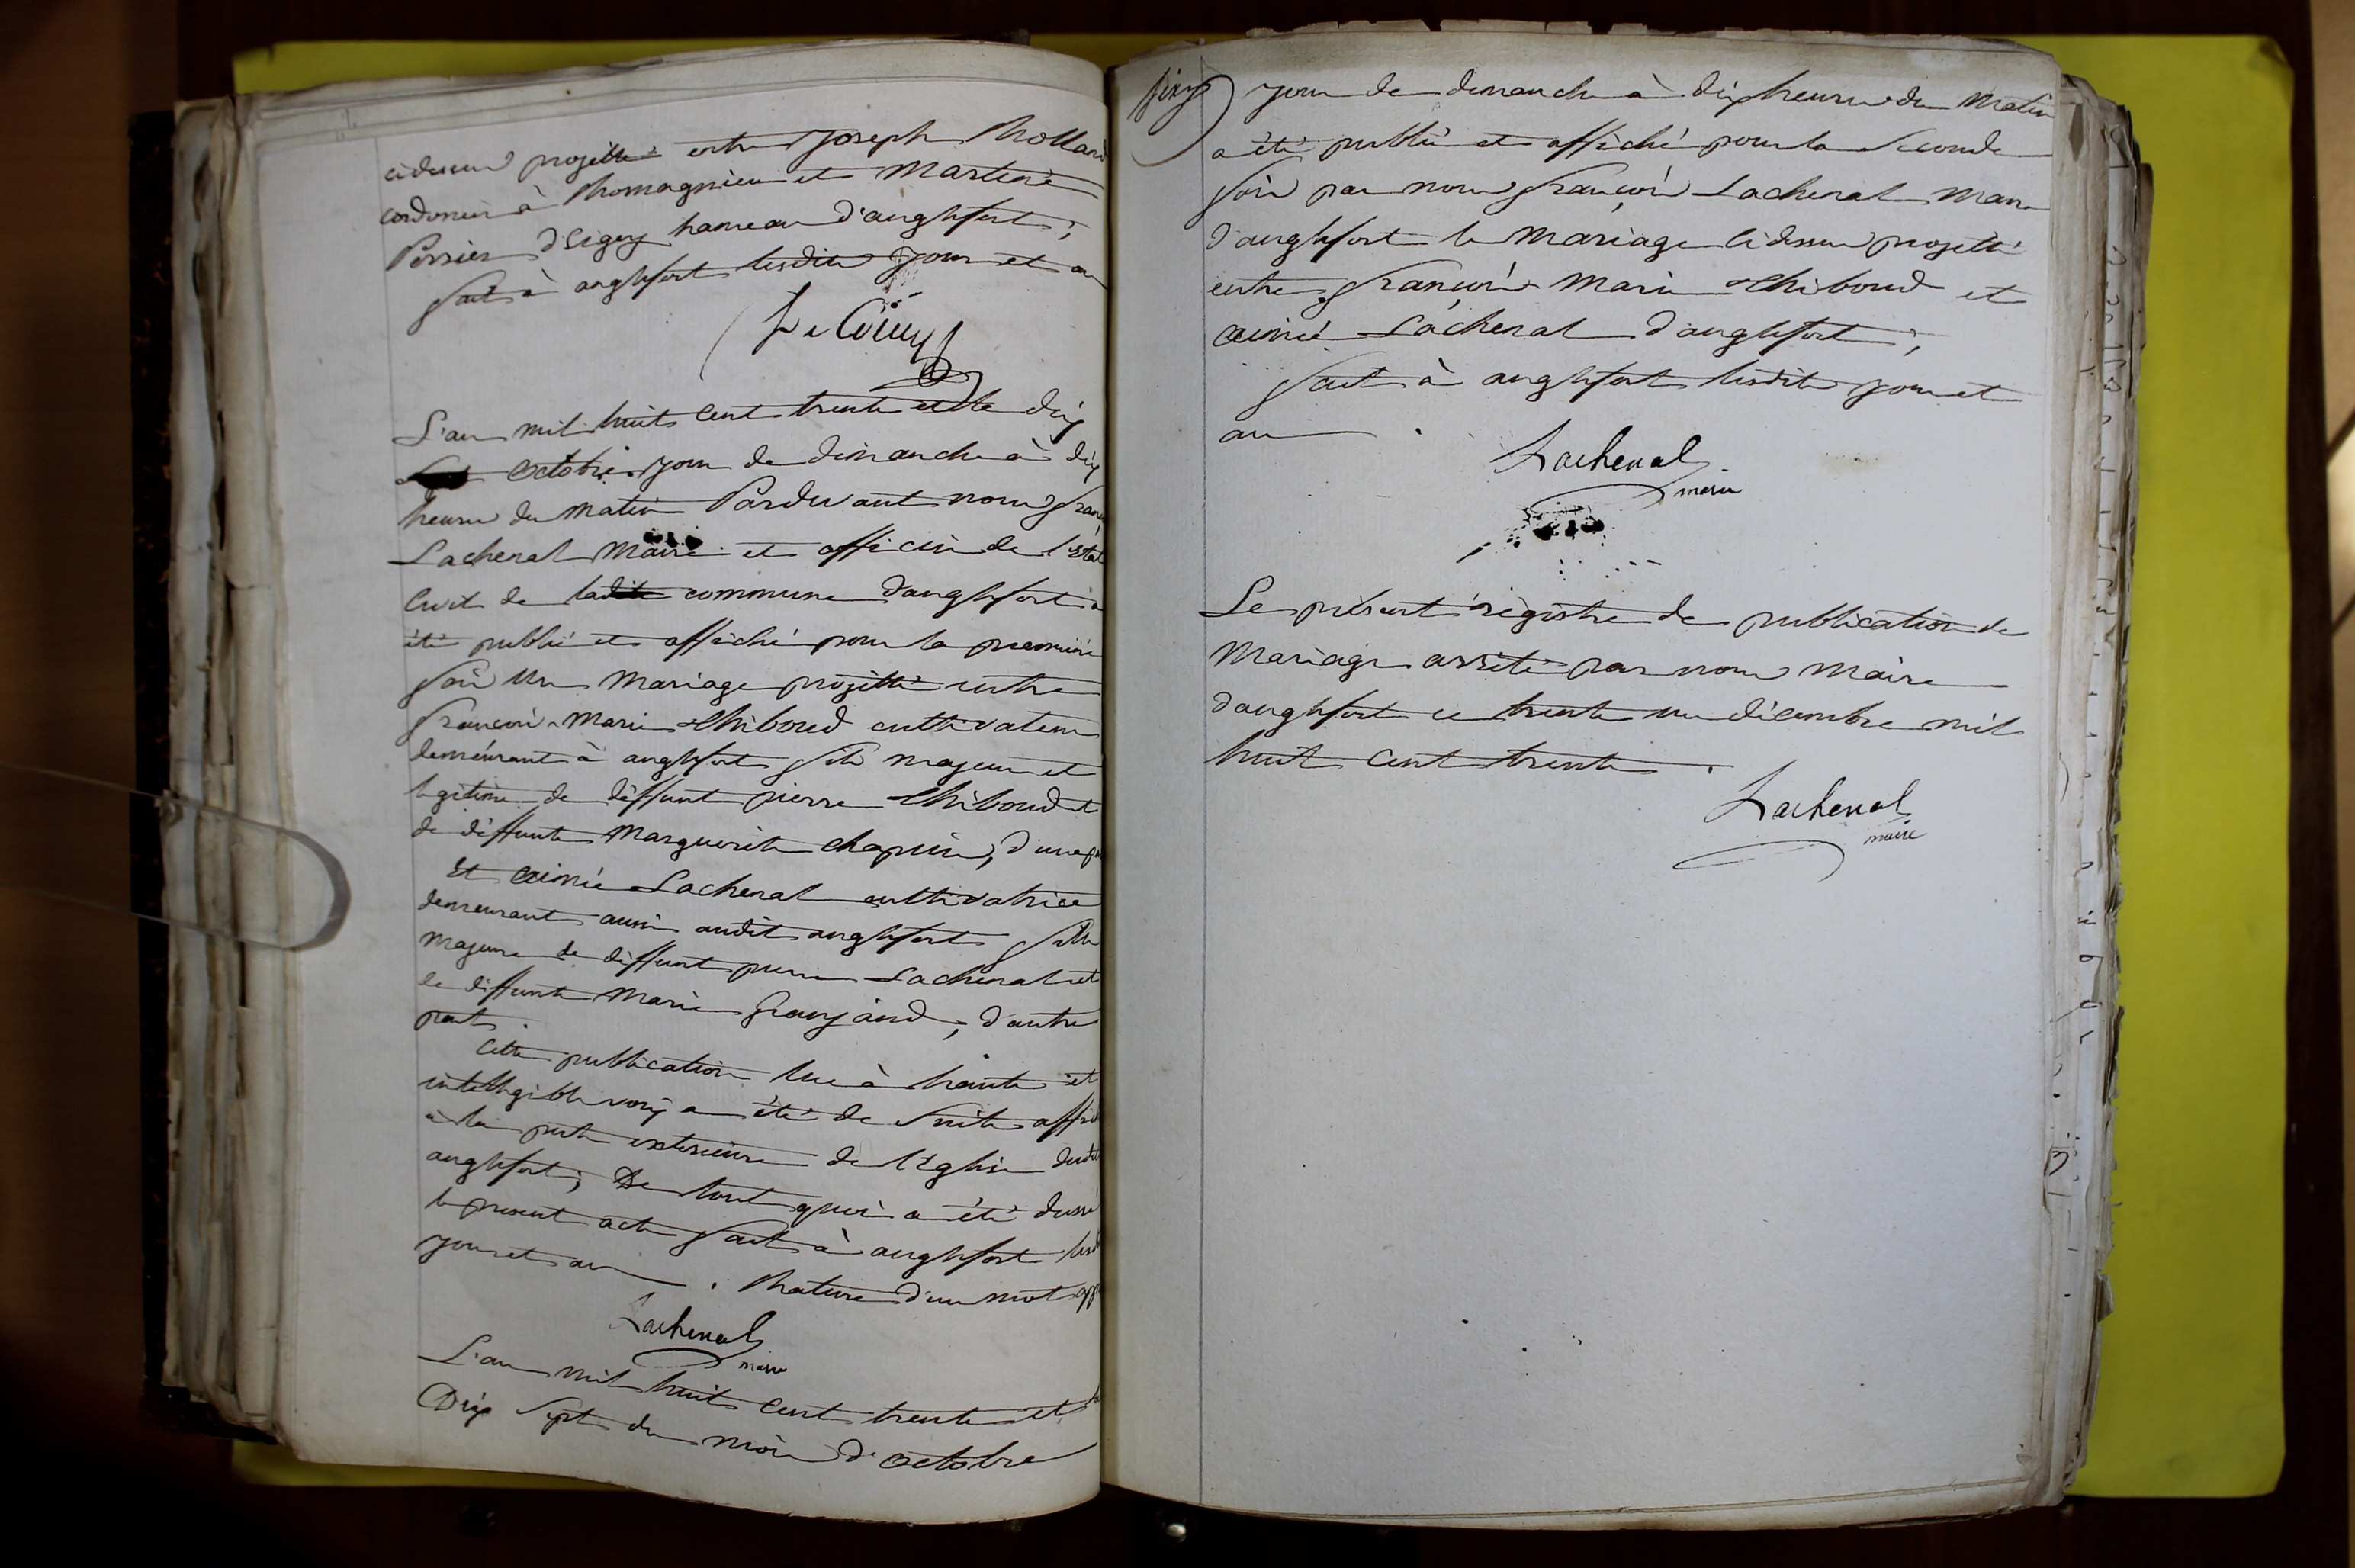 cidessus projetté entre Joseph Mollard
cordonier à Chomagnieu et Martine
Perrier d'Eigey hameau d'anglefort ;
fait à anglefort lesdits jour et an
L'an mil huit cent trente et le dix
octobre jour de dimanche à dix
heures du matin Pardevant nous franç
Lachenal Maire et officier de l'Etat
Civil de la commune d'anglefort a
été publié et affiché pour la premiere
fois Un Mariage projetté entre
françois-Marie Thiboud cultivateur
demeurant à anglefort fils majeur et
légitime de déffunt pierre Thiboud et
de déffunte Marguerite chapuis, d'une pa
Et aimée Lachenal cultivatrice
demeurant aussi audit anglefort fille
majeure de déffunt pierre Lachenal et
de déffunte Marie Granjand, d'autre
part.
Cette publication lue à haute et
intelligible voix a été de suite affi
à la porte exterieure de l'Eglise dudit
anglefort ; De tout quoi a été dressé
le présent acte fait à anglefort lesd
jour et an. Rature d'un mot app
Lachenal
maire
L'an mil huit cent trente et le
Dix Sept du mois d'octobre
jour de dimanche à dix heures du Matin
a été publié et affiché pour la Seconde
fois par nous françois Lachenal Maire
d'anglefort le Mariage cidessus projetté
entre françois Marie Thiboud et
aimée Lachenal d'anglefort ;
fait à anglefort lesdits jour et
an.
Lachenal
maire
Le présent régistre de publication de
Mariage arrêté par nous Maire
d'anglefort ce trente un décembre mil
huit cent trente.
Lachenal
maire